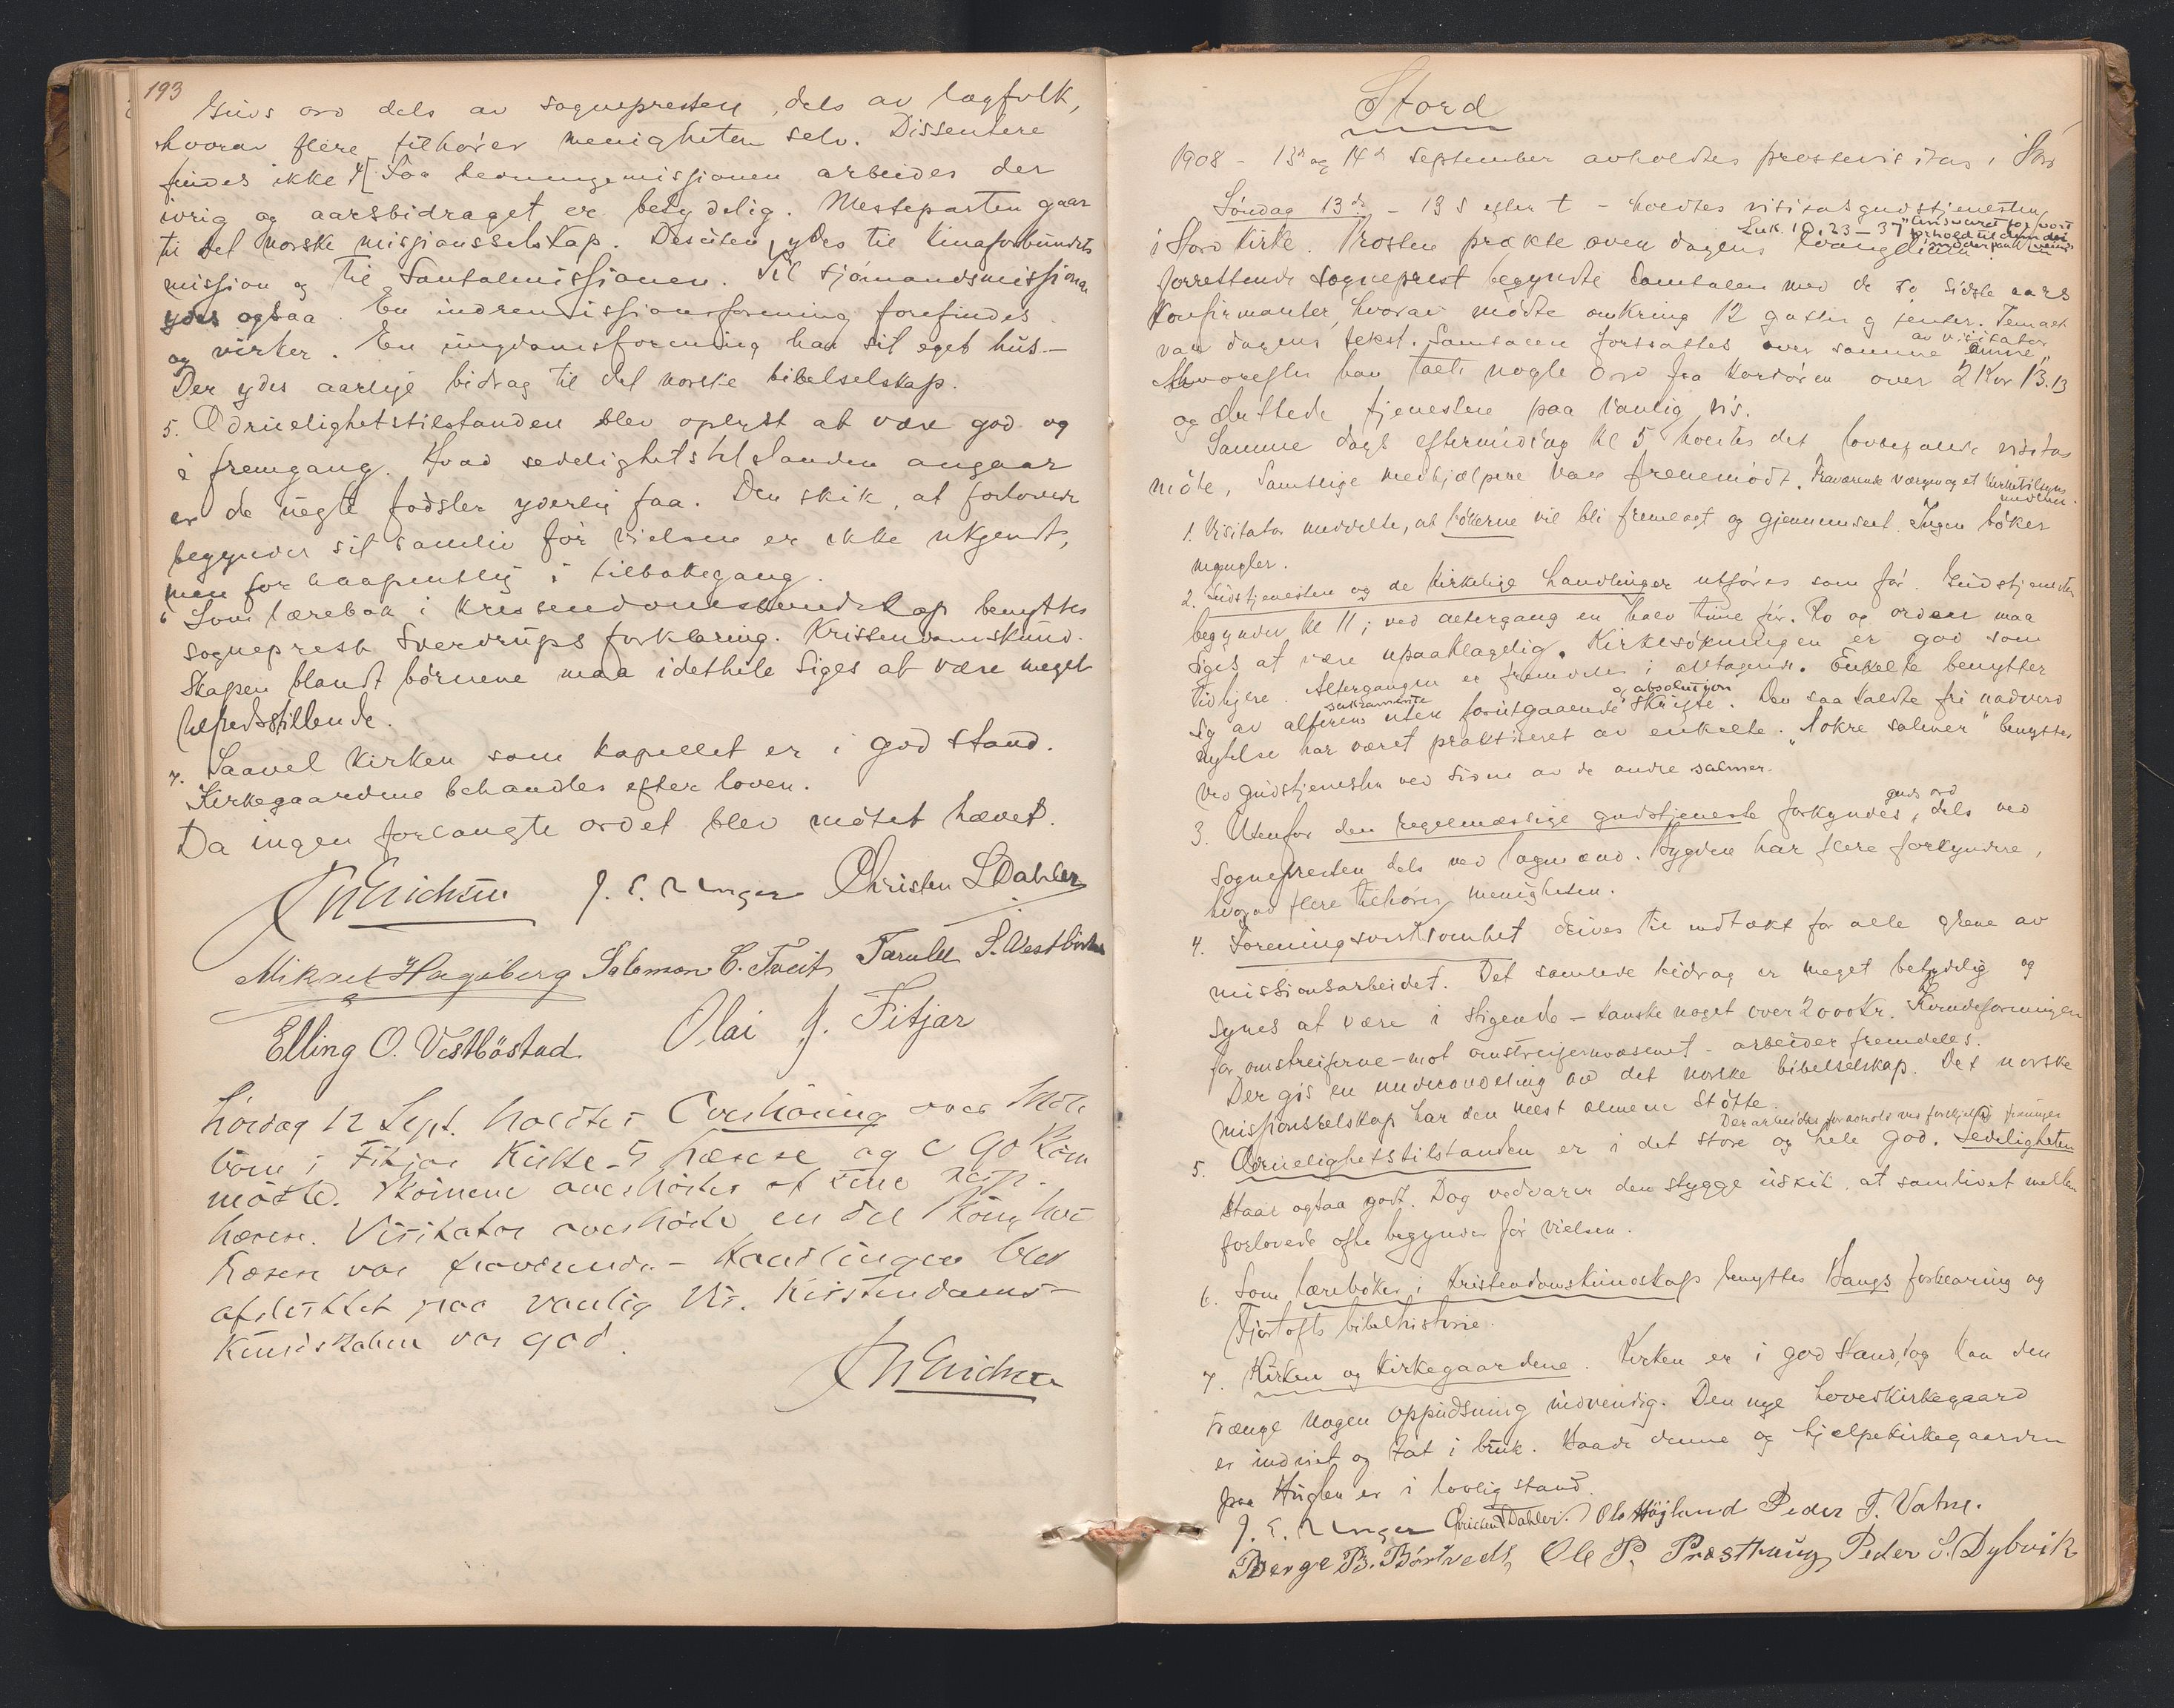 193
Guds ord dels av sognepresten, dels av lægfolk,
hvorav flere tilhører menigheten selv. Dissentere
findes ikke. 4[ For hedningemissionen arbeides der
ivrig og aarsbidraget er betydelig. Mesteparten gaar
til det norske missionsselskap. Desuten ydes til Kinaforbundets
mission og til Santalmissionen. Til sjømandsmissionen
ydes ogsaa. En indremissionsforening forefindes
og virker. En ungdomsforening har sit eget hus.-
Der ydes aarlige bidrag til det norske bibelselskap.
5. Ædruelighetstilstanden blev oplyst at være god og
i fremgang. Hvad sedelighetstilstanden angaar
er de uegte fødsler yderlig faa. Den skik, at forlovede
begynder sit samliv før vielsen er ikke ukjendt,
men forhaapentlig i tilbakegang.
6 Som lærebok i kristendomskundskap benyttes
sogneprest Sverdrups forklaring. Kristendomskund-
skapen blandt børnene maa idethele siges at være meget
tilfredsstillende.
7. Saavel kirken som kapellet er i god stand.
Kirkegaardene behandles efter loven.
Da ingen forlangte ordet blev møtet hævet.
J. E. Unger Christen L Dahler
Mikael Hagsberg Salomon C. Tveit S. Vestbøstad
Elling O. Vestbøstad Olai J. Fitjar
Lørdag 12 Sept. holdtes Overhøring over Skole
børn i Fitjar Kirke. 5 Lærere og c 90 Børn
mødte. Børnene overhørtes af sine resp.
Lærere. Visitator overhørte en del Børn hvis
Lærere var fraværende - Handlingen blev
afsluttet paa vanlig Vis. Kristendoms-
kundskaben var god.
Stord
1908 - 13de og 14de September avholdtes prostevisitas i Stord
Søndag 13de - 13 S efter t - holdtes visitasgudstjenesten
i Stord Kirke. Provsten prækte over dagens evangelium
Luk. 10.23-37
forrettende sogneprest begyndte samtalen med de to sidste aars
konfirmanter, hvorav mødte omkring 12 gutter og jenter. Temaet
var dagens tekst. Samtalen fortsattes av visitator over samme emne,
hvorefter han talte nogle ord fra Kordøren over 2 Kor 13.13
og sluttede tjenesten paa vanlig vis.
Samme dags eftermiddag kl 5 holdtes det lovbefalede visitas
møte, Samtlige medhjælpere var fremmødt. Fraværende værgen og et kirketilsyns
medlem.
1. Visitator meddelte, at bøkerne vil bli fremlagt og gjennemset. Ingen bøker
mangler.
2. Gudstjenesten og de kirkelige handlinger utføres som før. Gudstjenesten
begynder kl 11; ved altergang en halv time før. Ro og orden maa
siges at være upaaklagelig. Kirkesøkningen er god som
tidligere. Altergangen er fremdeles i avtagende. Enkelte benytter
sig av alterens sakramente uten forutgaaende skrifte og absolusjon. Den saa kaldte fri nadverd
nydelse har været praktiseret av enkelte. "Nokre salmer" benyttes
ved gudstjenesten ved siden av de andre salmer.
3. Utenfor den regelmæssige gudstjeneste forkyndes guds ord, dels ved
Sognepresten dels ved lægmænd. Bygden har flere forkyndere,
hvorav flere tilhører menigheten.
4. Foreningsvirksomhet drives til indtækt for alle grene av
missionsarbeidet. Det samlede bidrag er meget betydelig og
synes at være i stigende - kanske noget over 2000 Kr. Kvindeforeningen
for omstreiferne - mot omstreifervæsenet - arbeider fremdeles.
Der gis en underavdeling av det norske bibelselskap. Det norske
missionsselskap har den mest almene støtte.
5. Ædruelighetstilstanden er i det store og hele god. Sedeligheten
staar ogsaa godt. Dog vedvarer den stygge uskik, at samlivet mellem
forlovede ofte begynder før vielsen.
6. Som lærebøker i Kristendomskundskap benyttes Vangs forklaring og
Fjørtofts bibelhistorie.
7. Kirken og kirkegaardene. Kirken er i god stand, dog kan den
trænge nogen oppudsning indvendig. Den nye hovedkirkegaard
er indviet og tat i bruk. Baade denne og hjelpekirkegaarden
paa Huglen er i lovlig stand.
J. E. Unger Christen L Dahler. Ole Høyland Peder T. Vatne.
Berge B. Børtvedt, Ole P. Præsthaug, Peder S. Dybvik